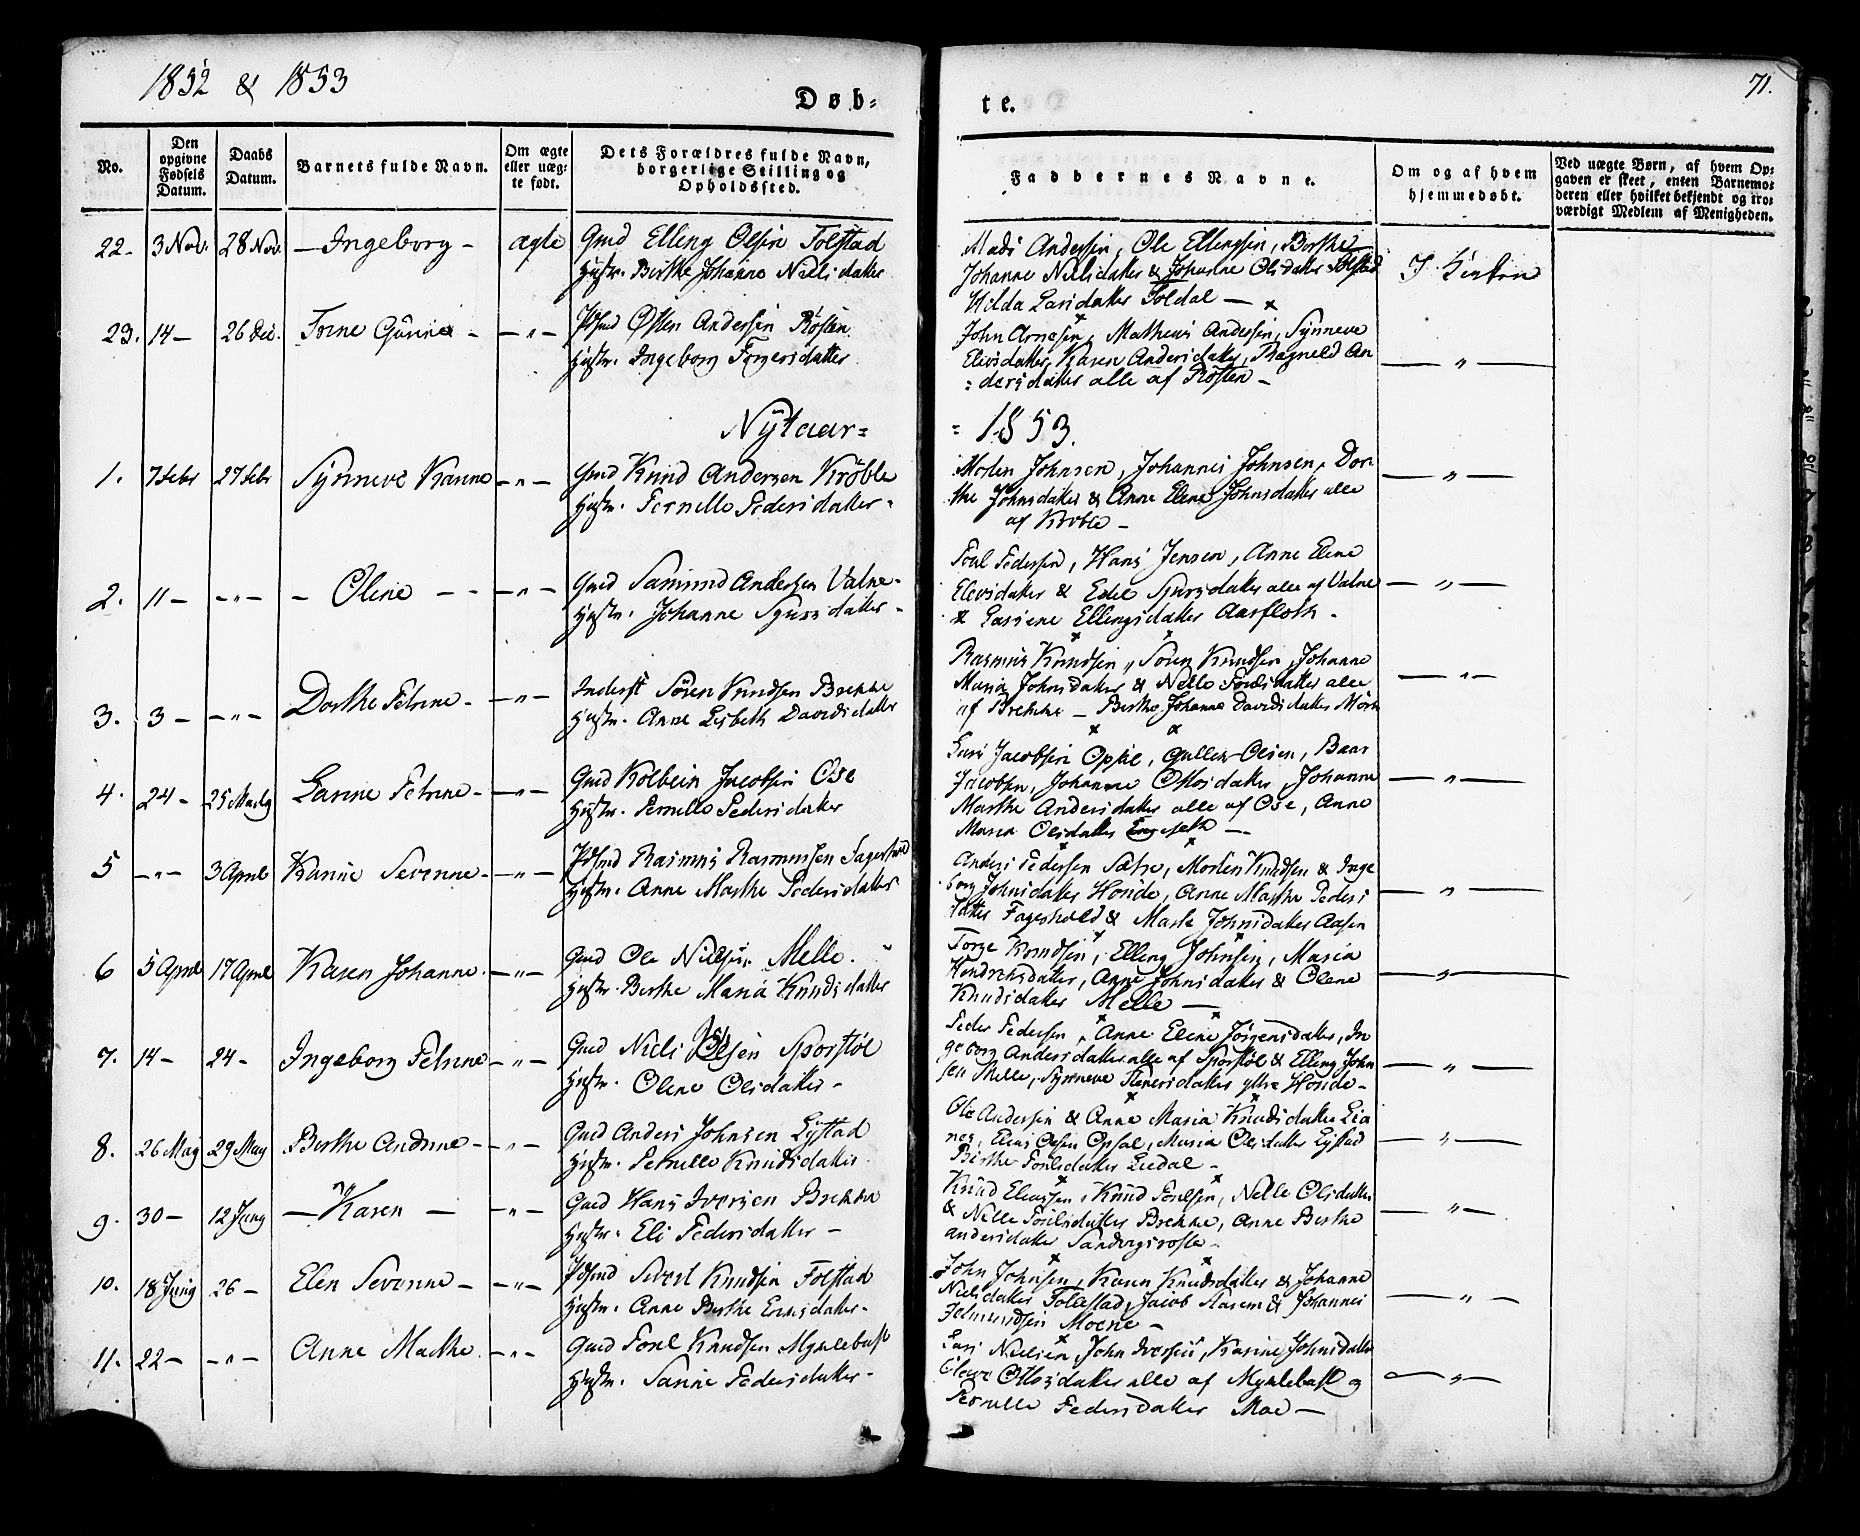 1852 & 1853
Døb-
te.
71.
No.
Den opgivne Fødsels Datum.
Daabs Datum.
Barnets fulde Navn.
Om ægte eller uægte født.
Dets Forældres fulde Navn, borgerlige Stilling og Opholdssted.
Faddernes Navne.
Om og af hvem hjemmedøbt.
Ved uægte Børn, af hvem Opgaven er skeet, enten Barnemoderen eller hvilket bekjendt og troværdigt Medlem af Menigheden.
22. 3 Nov. 28 Nov. Ingeborg ægte Gmd Elling Olsen Folstad
Hustr. Berthe Johanne Nielsdatter
Mads Andersen, Ole Ellingsen, Berthe
Johanne Nielsdatter & Johanne Olsdatter Folstad
Hilda Larsdatter Foldal
I Kirken
23. 14 26 Dec. Gurine
Østen Andersen Røsten
Hustr. Ingeborg
John Arnesen, Matheus Andersen, Synneve
Eliasdatter, Karen Andersdatter, Ragneld An
dersdatter alle af Røsten
Nytaar
= 1853.
1. 7 Febr 27 Febr Synneve Hanne Gmd Knud Andersen Krøble
Hustr. Pernille Pedersdatter
Morten Johnsen, Johannes Johnsen, Dor
the Johnsdatter & Anne Elene Johnsdatter alle
af Krøble
2. 11 Oline Gmd Samund Andersen Vatne
Hustr. Johanne Sjursdatter
Poul Pedersen, Hans Jensen, Anne Elene
Eliasdatter & Edel Sjursdatter alle af Vatne
& Lasiene Ellingsdatter Aarfloth
3. 3 Dorthe Petrine Inderst Søren Knudsen Brekke
Hustr. Anne Lisbeth Davidsdatter
Rasmus Knudsen, Søren Knudsen, Johanne
Maria Johnsdatter & Nelle Poulsdatter alle
af Brekke Berthe Johanne Davidsdatter Mørk
4. 24 25 Marty Larine Petrine Gmd Kolbein Jacobsen Ose
Hustr. Pernille Pedersdatter
Lars Jacobsen Opsal, Gullik Olsen, Baar
Jacobsen, Johanne Ottosdatter, Johanne
Marthe Andersdatter alle af Ose, Anne
Maria Olsdatter Engeseth
5 3 April Karine Severine Rasmus Rasmussen Fagerhold
Hustr. Anne Marthe Pedersdatter
Anders Pedersen Sætre, Morten Knudsen & Inge
borg Johnsdatter Hovide, Anne Marthe Peders
datter Fagerhold & Marte Johnsdatter Aasen
6 5 April 17 April Karen Johanne Gmd Ole Nielsen Melle
Hustr. Berthe Maria Knudsdatter
Torge Knudsen, Elling Johnsen, Maria
Hendricksdatter, Anne Johnsdatter & Olene
Knudsdatter Melle
7. 14 24 Ingeborg Petrine Gmd Niels Olsen Sporstøl
Hustr. Olene Olsdatter
Peder Pedersen, Anne Elene Jørgensdatter, In
geborg Andersdatter alle af Sporstøl & Elling John
sen Melle, Synneve Steinersdatter ytre Hovide
8. 26 May 29 May Berthe Andrine Gmd Anders Johnsen Lystad
Hustr. Petnille Knudsdatter
Ole Andersen & Anne Maria Knudsdatter Lia
nes, Elias Olsen Opsal, Maria Olsdatter Lystad
Berthe Poulsdatter Liedal
9. 30 12 Juny Karen Gmd Hans Iversen Brekke
Hustr. Eli Pedersdatter
Knud Eliassen, Knud Poulsen, Nelle Olsdatter
& Nelle Poulsdatter Brekke, Anne Berthe
Andersdatter
10. 18 Juny 26 Elen Severine Sivert Knudsen Folstad
Hustr. Anne Berthe
John Johnsen, Karen Knudsdatter & Johanne
Nielsdatter Folestad, Jacob Aasen & Johannes
Moene
11. 22 Anne Marthe Gmd Poul Knudsen Myklebust
Hustr. Sarine Pedersdatter
Lars Nielsen, John Iversen, Karine Johnsdatter
Ottosdatter alle af Myklebust og
Pernille Pedersdatter Moe